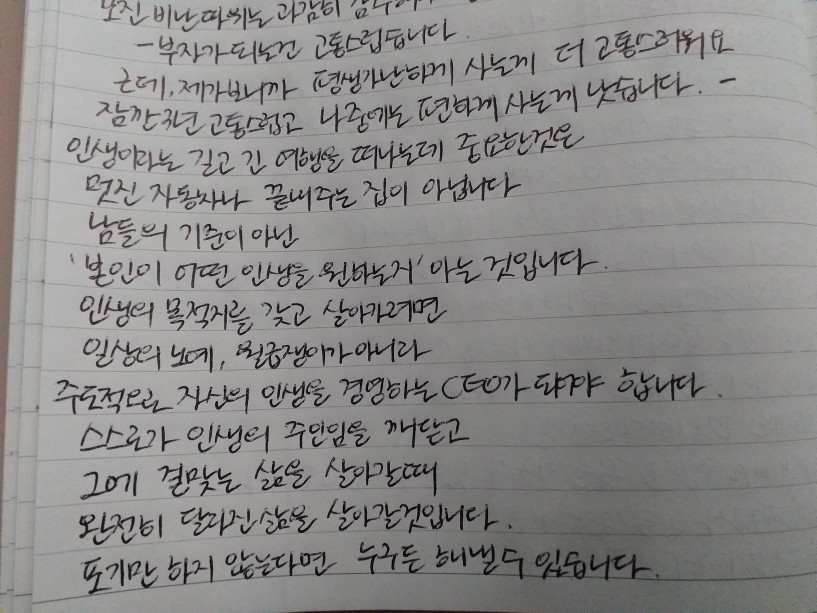 모진 비난 따위는 과감히
- 부자가 되는건 고통스럽습니다.
근데, 제가보니까 평생가난하게 사는게 더 고통스러워요
잠깐 몇년 고통스럽고 나중에는 편하게 사는게 낫습니다. -
인생이라는 길고 긴 여행을 떠나는데 중요한것은
멋진 자동차나 끝내주는 집이 아닙니다
남들의 기준이 아닌
'본인이 어떤 인생을 원하는지' 아는 것입니다.
인생의 목적지를 갖고 살아가려면
일상의 노예, 월급쟁이가 아니라
주도적으로 자신의 인생을 경영하는 CEO가 돼야 합니다.
스스로가 인생의 주인임을 깨닫고
그에 걸맞는 삶을 살아갈때
완전히 달라진 삶을 살아갈것입니다.
포기만 하지 않는다면 누구든 해낼수 있습니다.